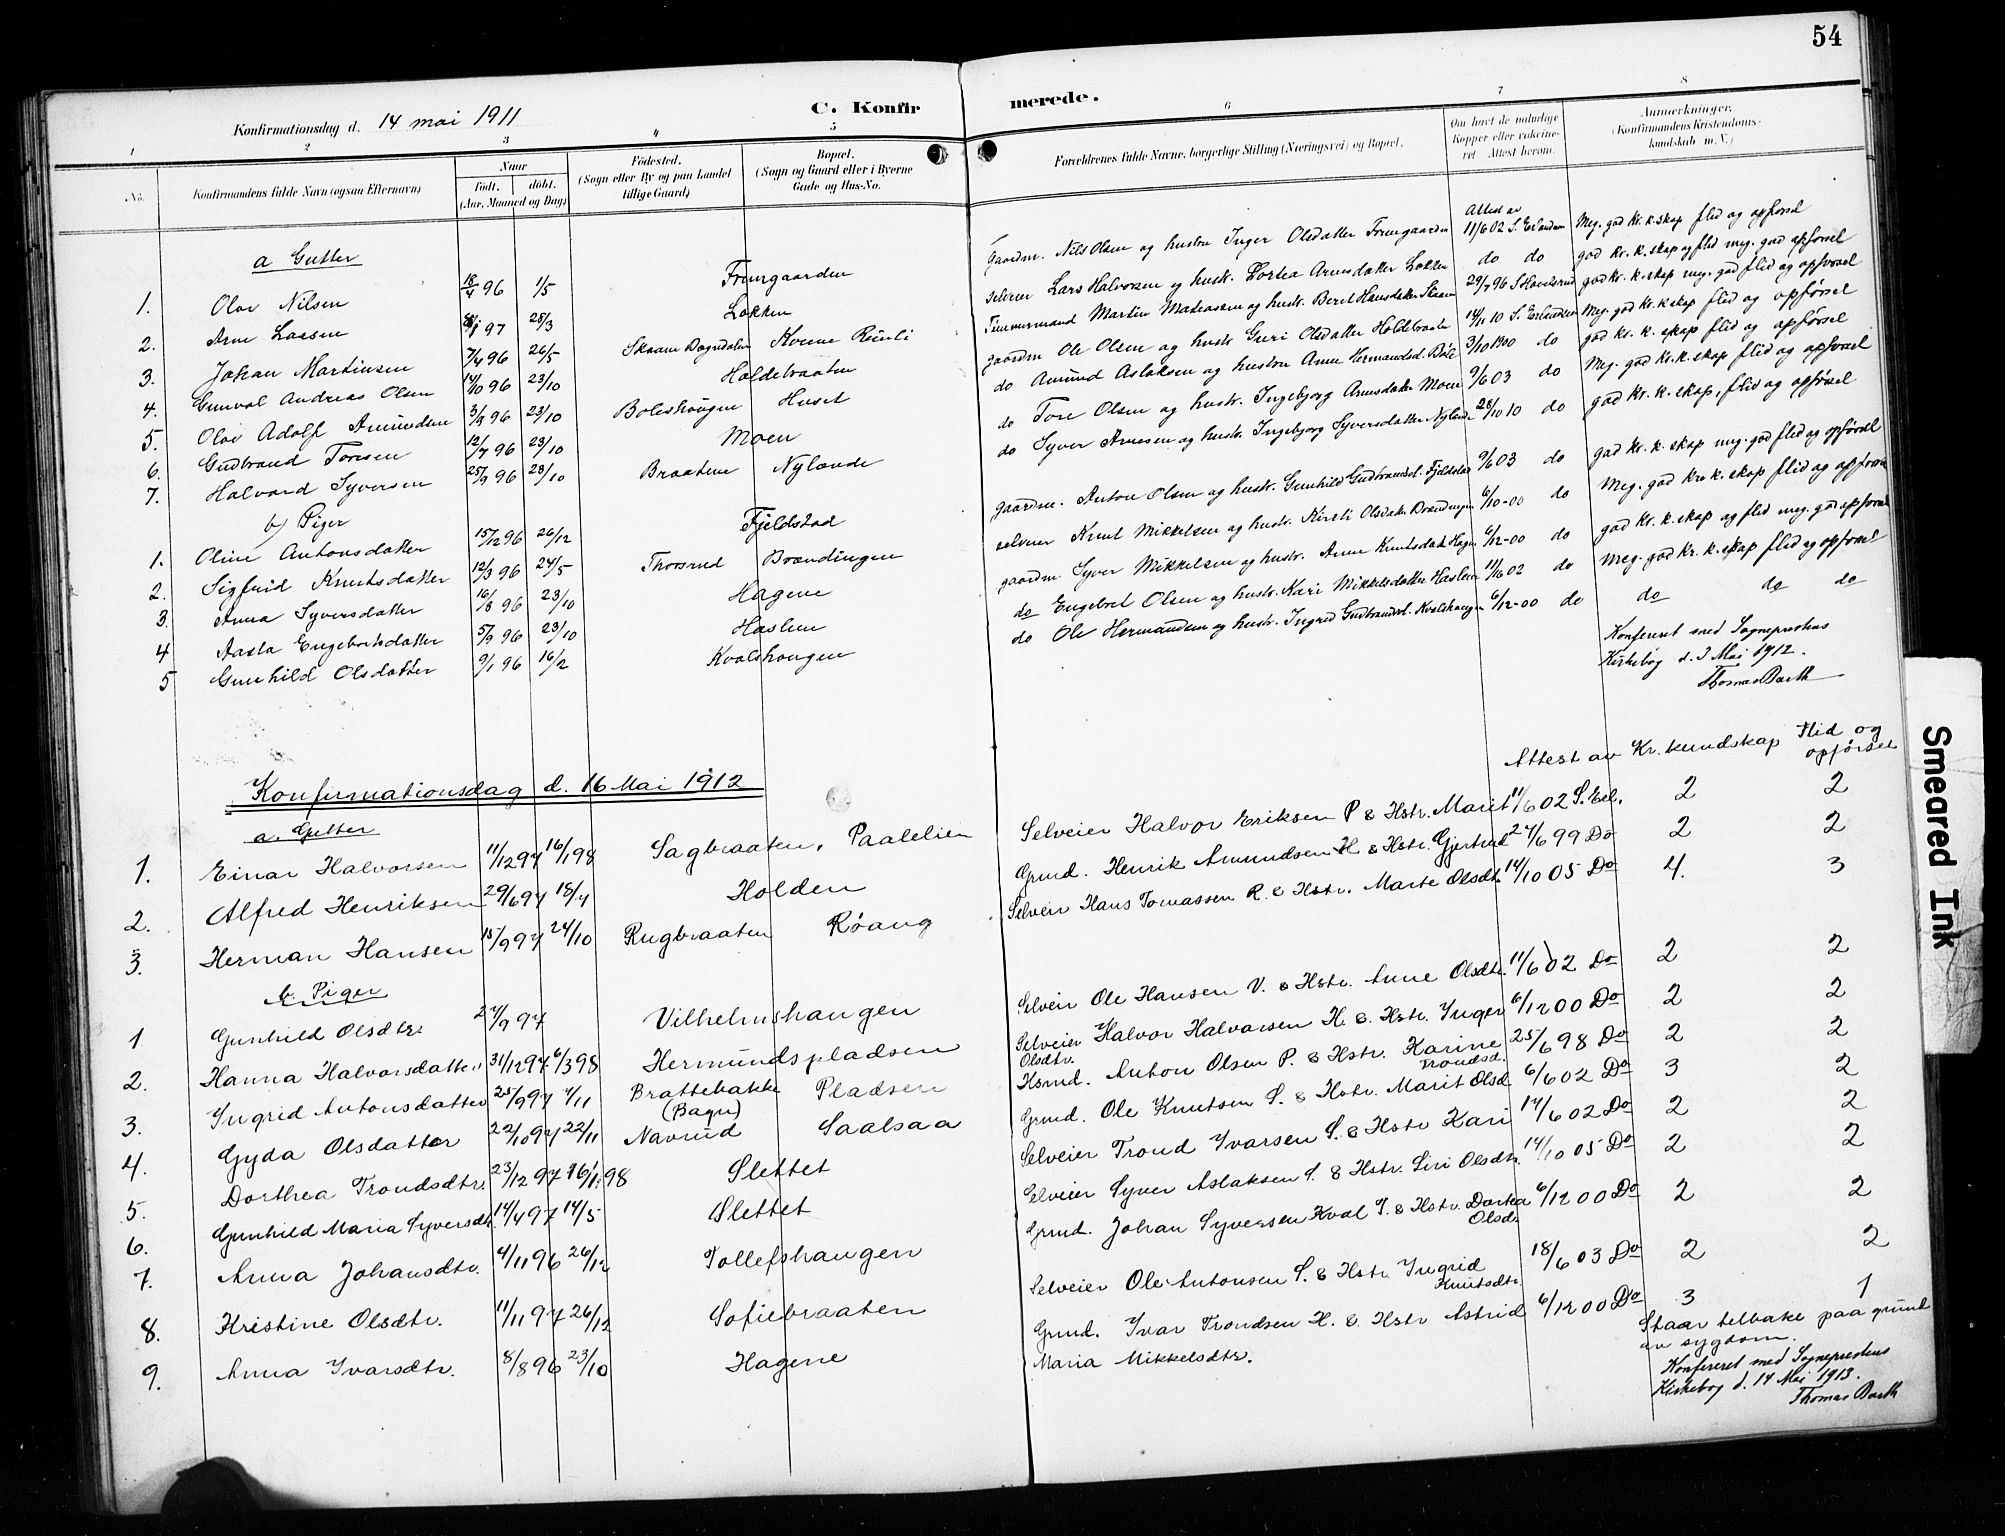 54
Konfirmationsdag d. 14 mai 1911
C. Konfirmerede.
1 2 3 4 5 6 7 8
No. Konfirmandens fulde Navn (ogsaa Efternavn) Naar født. døbt. (Aar, Maaned og Dag) Fødested. (Sogn eller By og paa Landet tillige Gaard) Bopæl. (Sogn og Gaard eller i Byerne Gade og Hus-No. Forældrenes fulde Navne, borgerlige Stilling (Næringsvei) og Bopæl. Om havt de naturlige Kopper eller vakcineret. Attest herom. Anmerkninger. (Konfirmandens Kristendomskundskab m. V.)
a Gutter
1. Olav Nilsen 18/4 96 1/5 Fremgaarden Gaardm. Nils Olsen og hustru Inger Olsdatter Fremgaarden Attest av 11/6 02 S. Erlandsen Meg. god kr. k. skap flid og opførsel
2. Arne Larsen 97 28/3 Løkken selveier Lars Halvorsen og hustr. Dortea Arnesdatter Løkken do do god kr. k. skap og flid meg. god opførsel
3. Johan Martinsen 7/4 96 26/5 Skraam Bagndalen Timmermand Martin og hustr. Beret Hansdatter 29/7 96 god kr. k. skap meg. god flid og opførsel
4. Gunval Andreas Olsen 14/10 96 23/10 Holdebraaten gaardm Ole Olsen og hustr. Guri Olsdatter Holdebraaten 14/11 10 S. Erlandsen Meg. god kr. k. skap flid og opførsel
5. Olav Adolf Amundsen 96 23/10 Boleshaugen Huset do Amund Aslaksen og hustru Anne Hermandsd. 3/10 1900 do god kr. k. skap flid og opførsel
6. Gudbrand Toresen 12/7 96 23/10 Moen do Tore Olsen og hustr. Ingebjorg Arnesdatter Moen 9/6 03 do Meg. god kr. k. skap flid og opførsel
7. Halvard Syversen 25/9 96 23/10 Braatene Nylande do Syver Arnesen og hustr. Ingebjorg Syversdatter Nylande 28/10 10 do god kr. k. skap, flid og opførsel
b) Piger
1. Oline Antonsdatter 15/12 96 26/12 Fjeldstad gaardm. Anton Olsen og hustr. Gunhild Gudbrandsd. Fjeldstad 9/6 03 do god kr. k. skap meg. god flid og opførsel
2. Sigfrid Knutsdatter 12/3 96 24/5 Thorsrud Brandingen selveier Knut Mikkelsen og hustr. Kirsti Olsdatr Brandingen 6/10-00 do Meg. god kr. k. skap flid og opførsel
3. Anna Syversdatter 16/8 96 23/10 Hagene gaardm Syver Mikkelsen og hustr. Anne Knutsdatr Hagen 6/12-00 do god kr. k. skap og flid meg. god opførsel
4 Aasta Engebretsdatter 5/9 96 23/10 Haslene do Engebret Olsen og hustr. Kari Mikkelsdatter Haslene 11/6 02 do Meg. god kr. k. skap flid og opførsel
5 Gunhild Olsdatter 9/1 96 16/2 Kvalshaugen do Ole Hermandsen og hustr. Ingrid Gudbrandsd. Kvalshaugen 6/12-00 do do do do
Konfereret med Sogneprestens
Kirkebog d. 3 Mai 1912.
Thomas Barth
Attest av Kr. kundskap Flid og opførsel
Konfirmationsdag d. 16 Mai 1912
a. Gutter
1. Einar Halvorsen 11/12 97 16/1 98 Sagbraaten, Paalelien Selveier Halvor Eriksen P & Hstr. Marit 11/6 02 S. Erl. 2 2
2. Alfred Henriksen 29/6 97 18/7 Holden Grmd. Henrik Amundsen H & Hstr. Gjertrud 27/6 99 Do 2 2
3. Herman Hansen 15/9 97 24/10 Rugbraaten Røang Selveir Hans Tomassen R. & Hstr. Marte Olsdtr. 14/10 05 Do 4. 3
b. Piger
1 Gunhild Olsdtr. 27/9 97 Vilhelmshaugen Selveir Ole Hansen V. & Hstr. Anne Olsdtr. 11/6 02 Do 2 2
2. Hanna Halvorsdatter 31/12 97 6/3 98 Hermundspladsen Selveier Halvor Halvorsen H. & Hstr. Inger Olsdtr. 6/12 00 Do 2 2
3. Ingrid Antonsdatter 25/9 97 7/11 Brattebakke (Bagn) Pladsen Hsmd. Anton Olsen P. & Hstr. Karine Trondsd. 25/6 98 Do 2 2
4. Gyda Olsdatter 22/10 97 22/11 Navrud Saalsaa Grmd. Ole Knutsen S. & Hstr. Marit Olsd. 6/6 02 Do 3 2
5. Dorthea Trondsdtr. 23/12 97 16/1 98 Slettet Selveier Trond Ivarsen S. & Hstr Kari 14/6 02 Do 2 2
6. Gunhild Maria Syversdtr 14/4 97 14/5 Slettet Selveier Syver Aslaksen S. & Hstr. Siri Olsdtr. 14/10 05 Do 2 2
7. Anna Johansdtr. 4/11 96 26/12 Tollefshaugen Grmd. Johan Syversen Kval T. & Hstr. Dortea Olsdr 6/12 00 Do 2 2
8. Kristine Olsdtr. 11/11 97 26/12 Sofiebraaten Selveier Ole Antonsen S. & Hstr. Ingrid Knutsdtr. 18/6 03 Do 2 2
9. Anna Ivarsdtr. 8/8 96 23/10 Hagene Grmd. Ivar Trondsen H. & Hstr Astrid Maria Mikkelsdtr. 6/12 00 Do 3 1
Staar tilbake paa grund
av sygdom.
Konfereret med Sogneprestens
Kirkebog d. 14 Mai 1913.
Thomas Barth
Smeared Ink